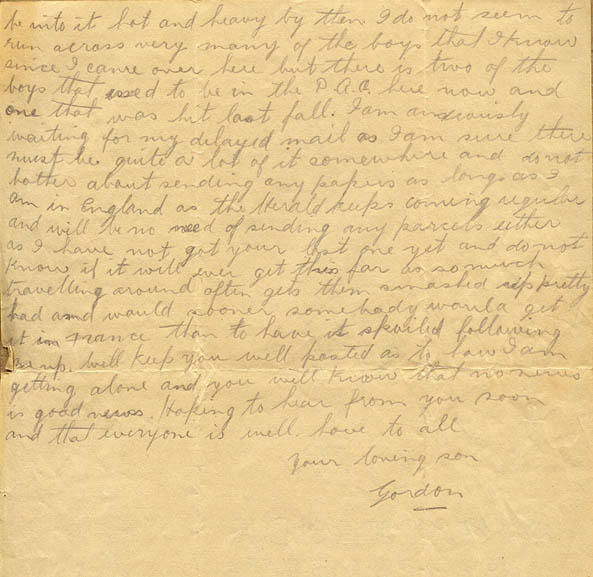 be into it hot and heavy by then I do not seem to
run across very many of the boys that I know
since I came over here but there is two of the
boys that used to be in the D.A.C. here now and
one that was hit last fall. I am anxiously
waiting for my delayed mail as I am sure there
must be quite a lot of it somewhere and do not
bother about sending any papers as long as I
am in England as the Herald keeps coming regular
and will be no need of sending any parcels either
as I have not got your last one yet and do not
know if it will ever get this far as so much
travelling around often gets them smashed up pretty
bad and would sooner somebody would get
it in France than to have it spoiled following
me up. Well keep you well posted as to how I am
getting alone and you will know that no news
is good news. Hoping to hear from you soon
and that everyone is well. love to all
Your loving son
Gordon